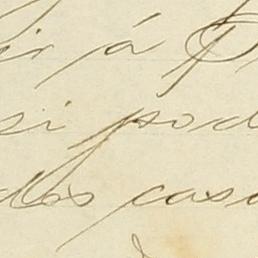 ir á
si pod
dos casa